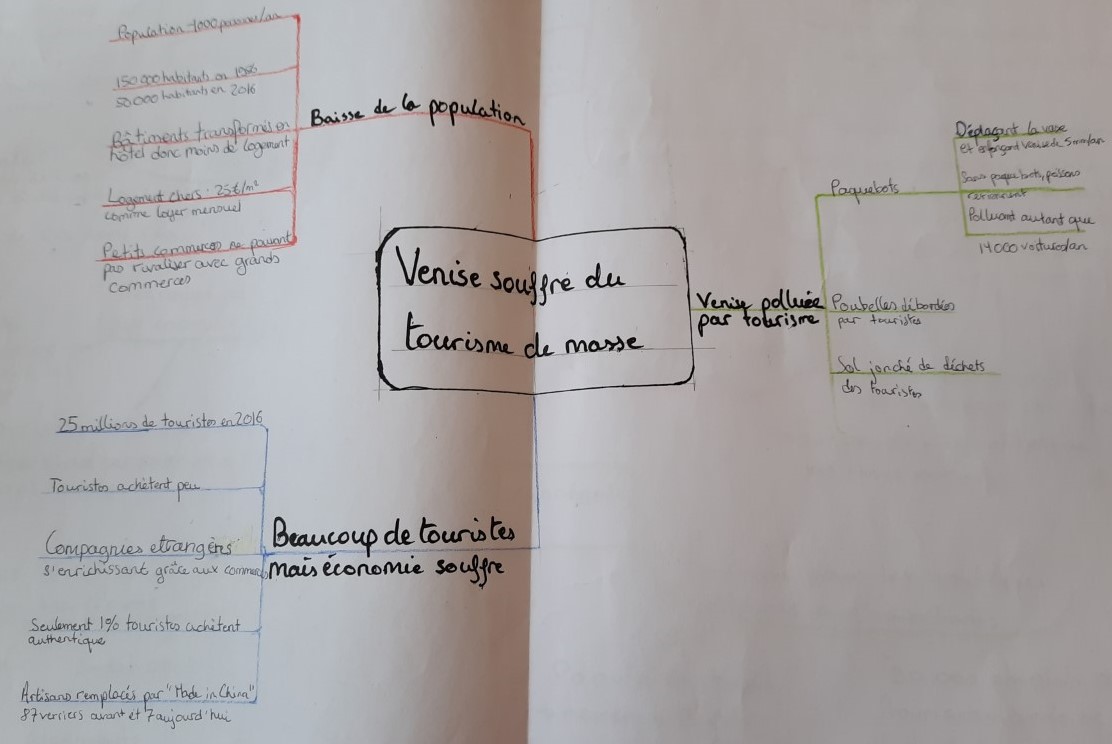 Venise souffre du
tourisme de masse
Baisse de la population
Population -1000 personnes/an
150 000 habitants en 1956
50 000 habitants en 2016
Bâtiments transformés en
hôtel donc moins de logement
Logement chers : 25€/m²
comme loyer mensuel
Petits commerces ne pouvant
pas rivaliser avec grands
commerces
Venise polluée
par tourisme
Paquebots
Déplaçant la vase
et enfonçant venise de 5mm/an
Sans paquebots, poissons
reviennent
Polluant autant que
14000 voitures/an
Poubelles débordées
par touristes
Sol jonché de déchets
des touristes
Beaucoup de touristes
mais économie souffre
25 millions de touristes en 2016
Touristes achètent peu
Compagnies etrangères
s'enrichissant grâce aux commerces
Seulement 1% touristes achètent
authentique
Artisans remplacés par "Made in China"
87 verriers avant et 7 aujourd'hui